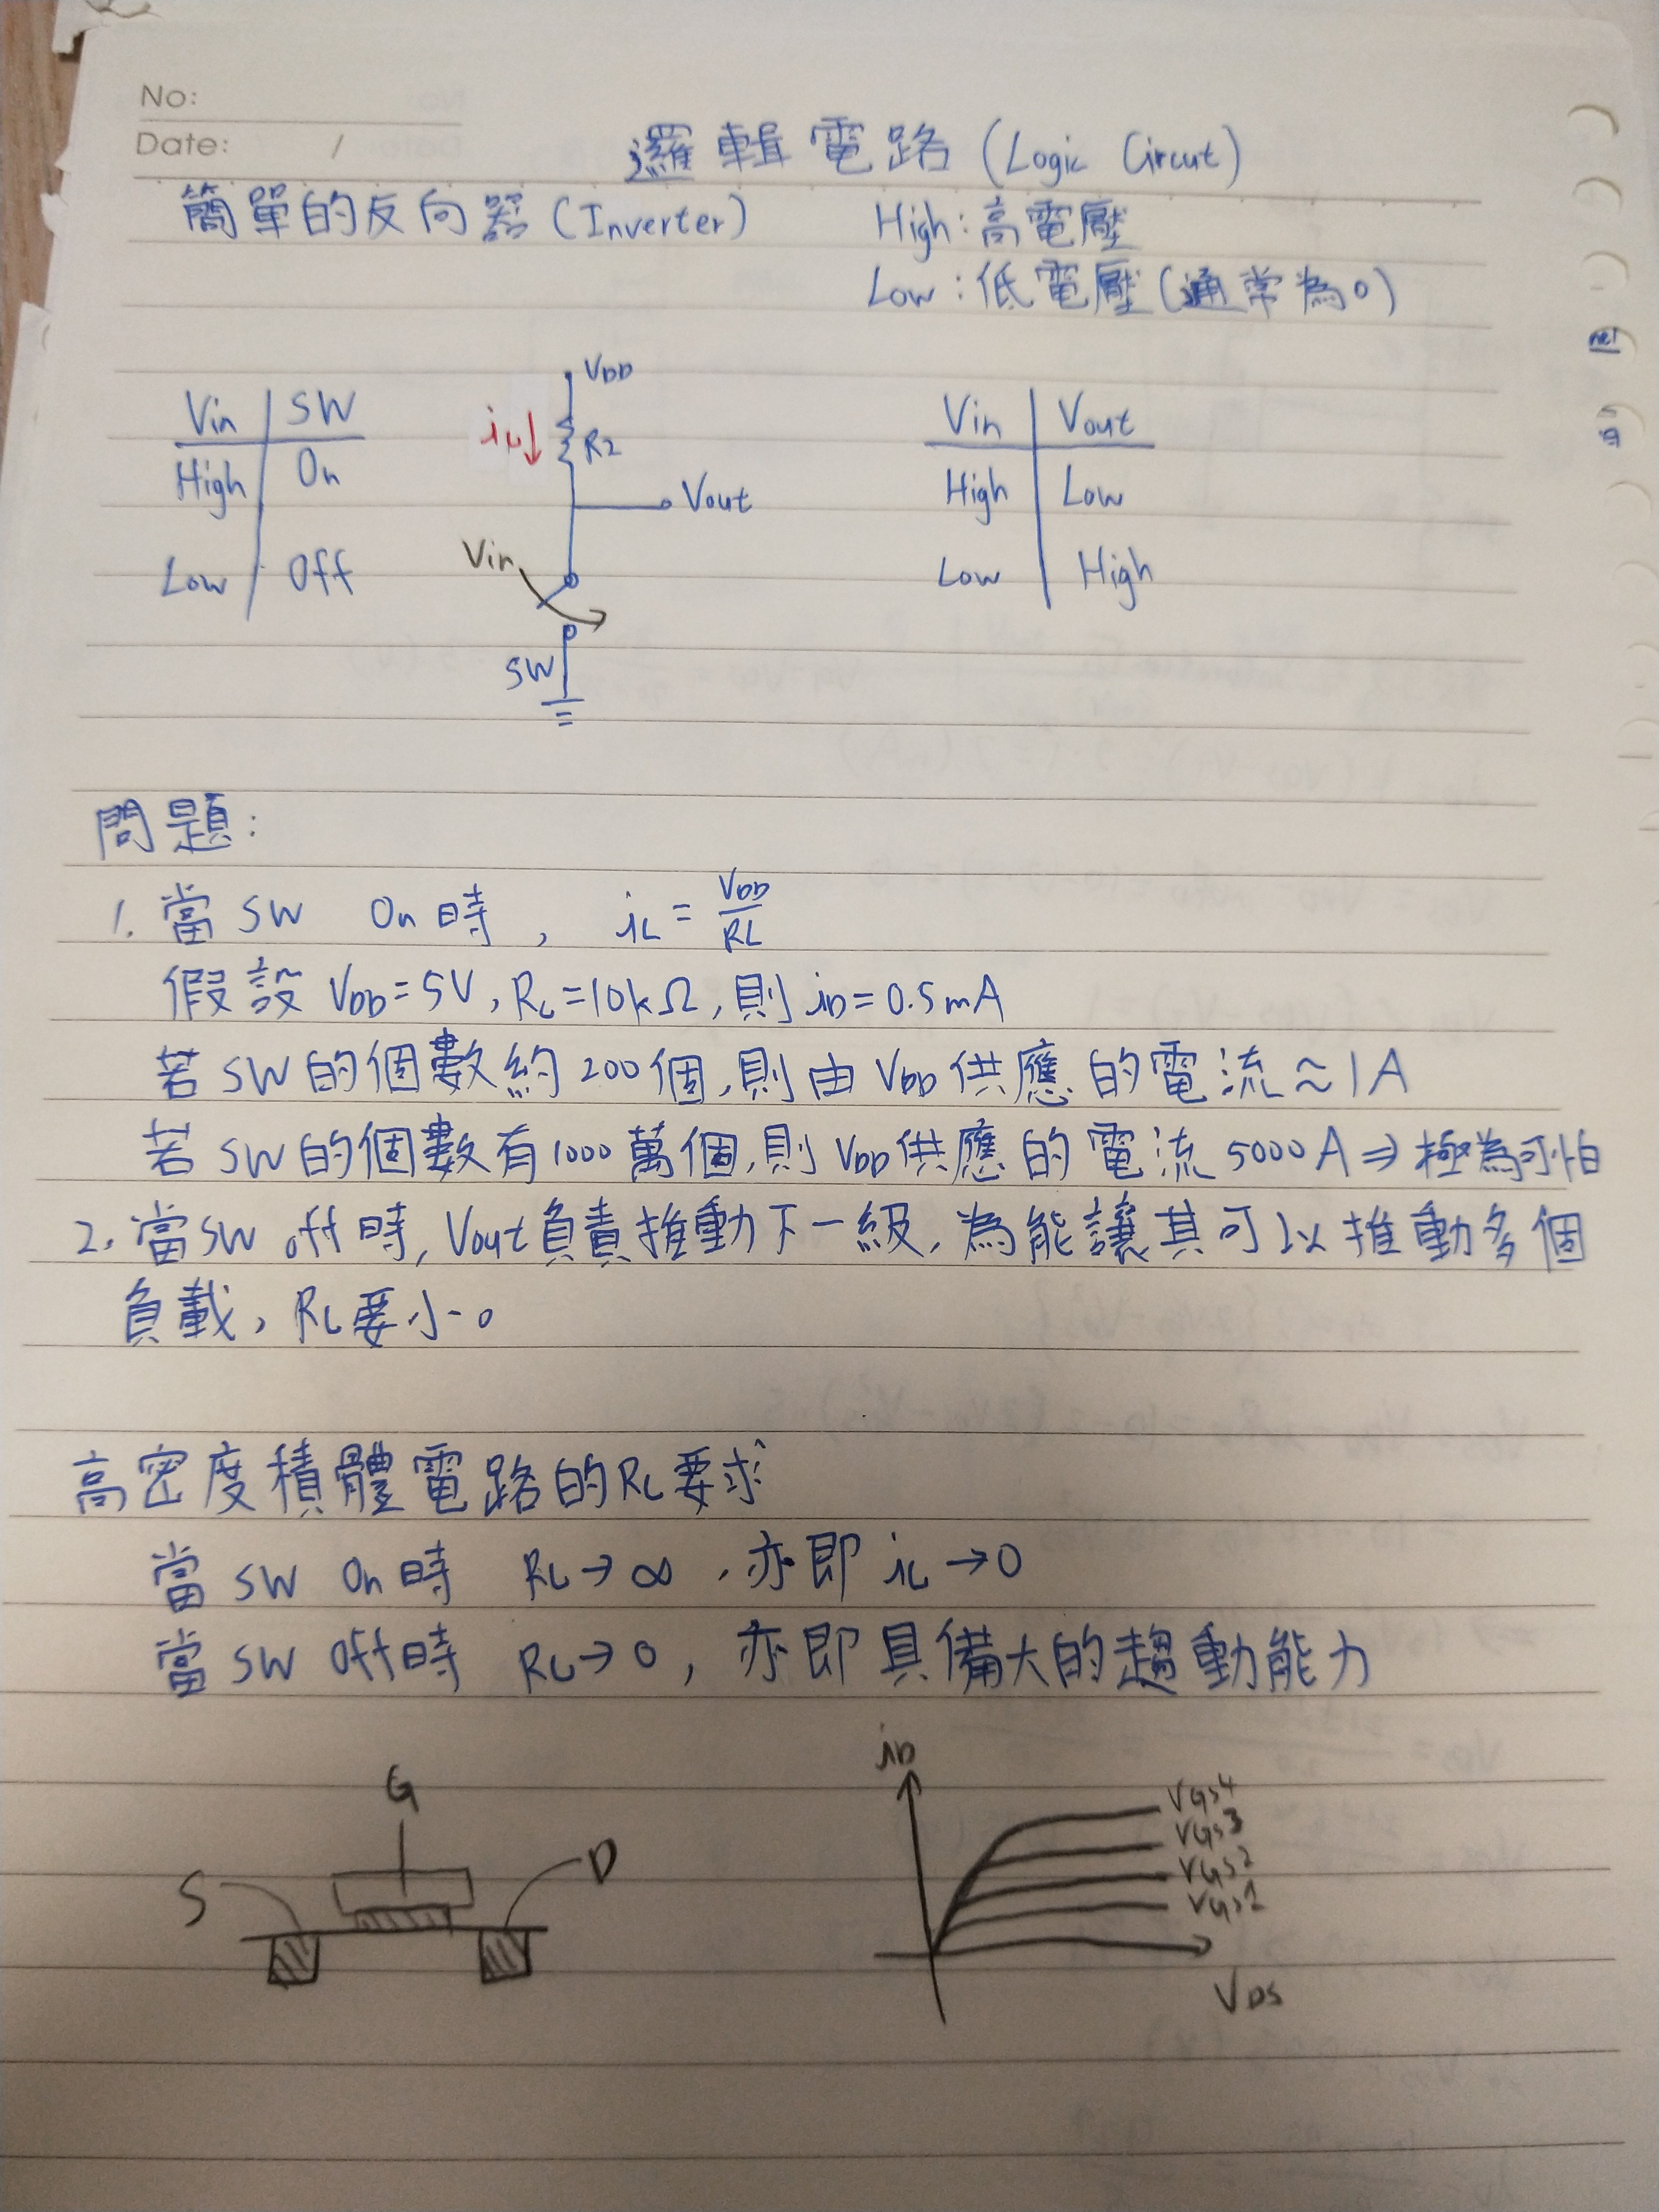 No:
Date: /
邏輯電路(Logic Circut)
簡單的反向器(Inverter)
High:高電壓
Low:低電壓(通常為0)
Vin SW
High On
Low Off
VDD
iL↓
R2
Vout
Vin
SW
Vin Vout
High Low
Low High
問題:
1.當SW On時, iL=VDD/RL
假設VDD=5V,RL=10kΩ,則iD=0.5mA
若SW的個數約200個,則由VDD供應的電流≈1A
若SW的個數有1000萬個,則VDD供應的電流5000A⇒極為可怕
2.當SW off時,Vout負責推動下一級,為能讓其可以推動多個
負載,RL要小。
高密度積體電路的RL要求
當SW On時 RL→∞,亦即iL→0
當SW Off時 RL→0,亦即具備大的趨動能力
G
S
D
iD
VGS4
VGS3
VGS2
VGS1
VDS